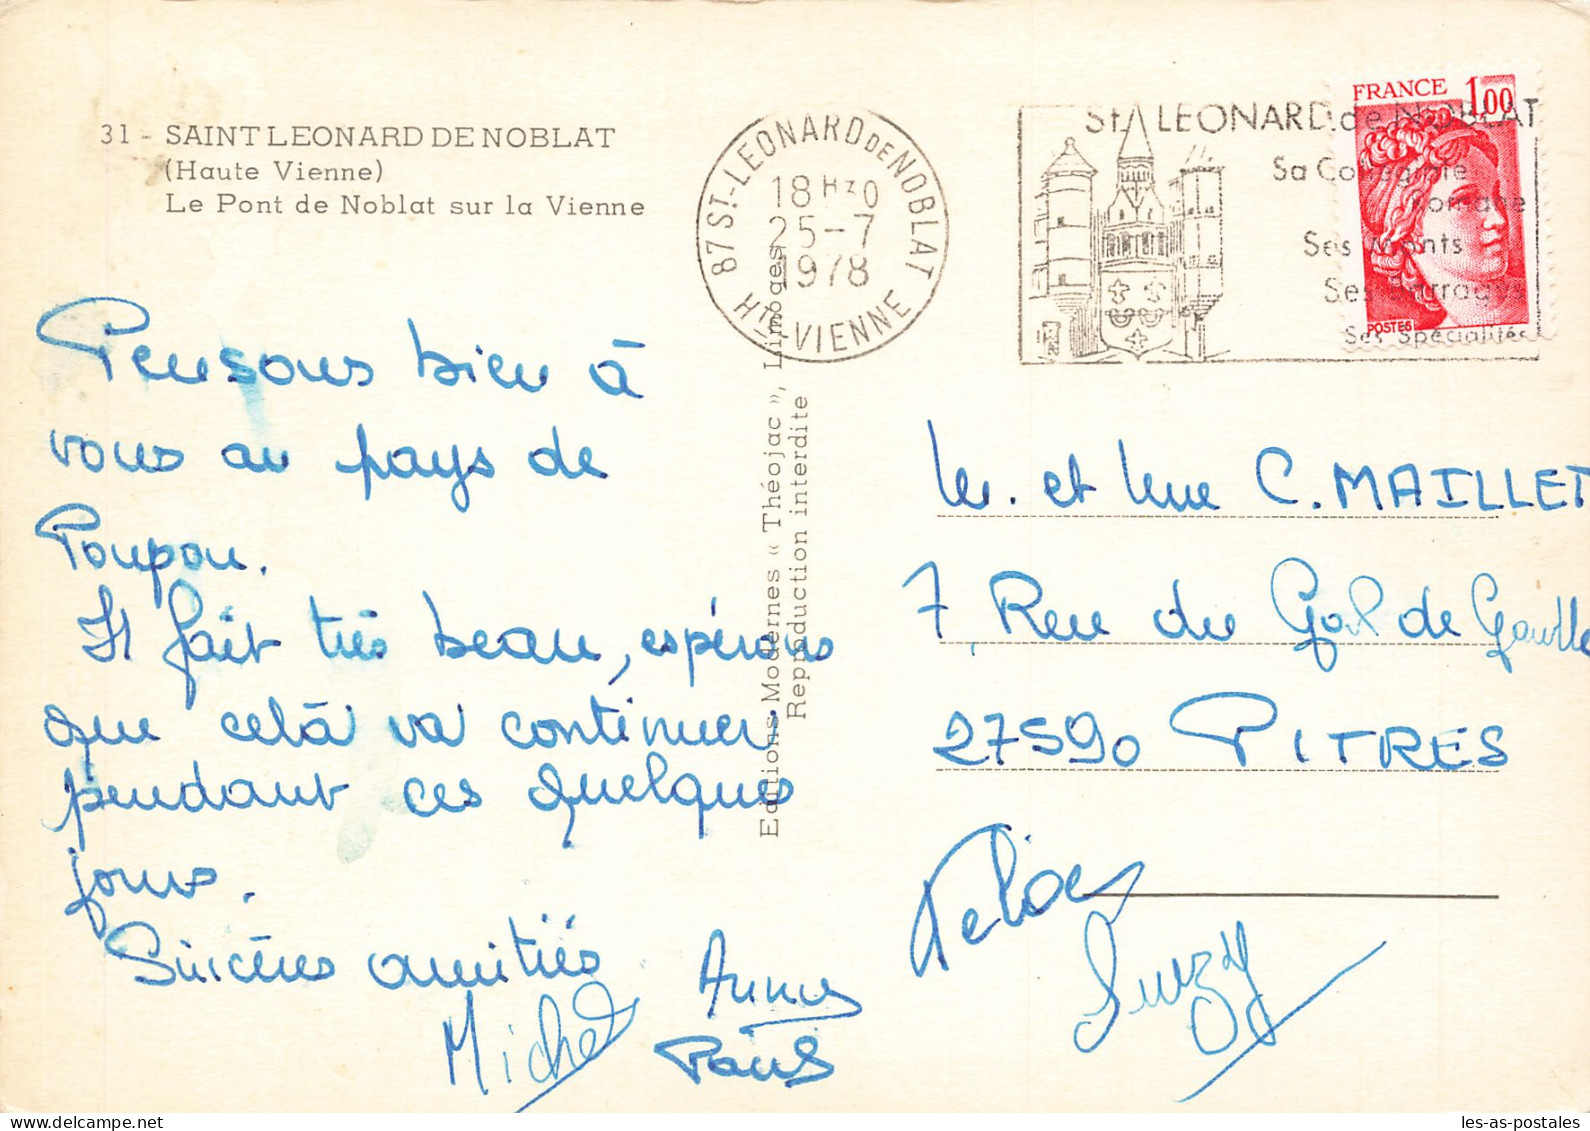 31 - SAINT LEONARD DE NOBLAT
(Haute Vienne)
Le Pont de Noblat sur la Vienne
87 ST-LEONARD DE NOBLAT
18 H 30
25-7
1978
HTE-VIENNE
St LEONARD de NOBLAT
Sa Collégiale
Romane
Ses Monts
Ses Barrages
Ses Spécialités
FRANCE 1,00
POSTES
Pensons bien à
vous au pays de
Poupou.
Il fait très beau, espérons
que celà va continuer
pendant ces quelques
jours.
Sincères amitiés
Michel
Annie
Paul
Suzy
Editions Modernes « Théojac », Limoges
Reproduction interdite
Mr. et Mme C. MAILLET
7, Rue du Gal de Gaulle
27590 PITRES
les-as-postales.com